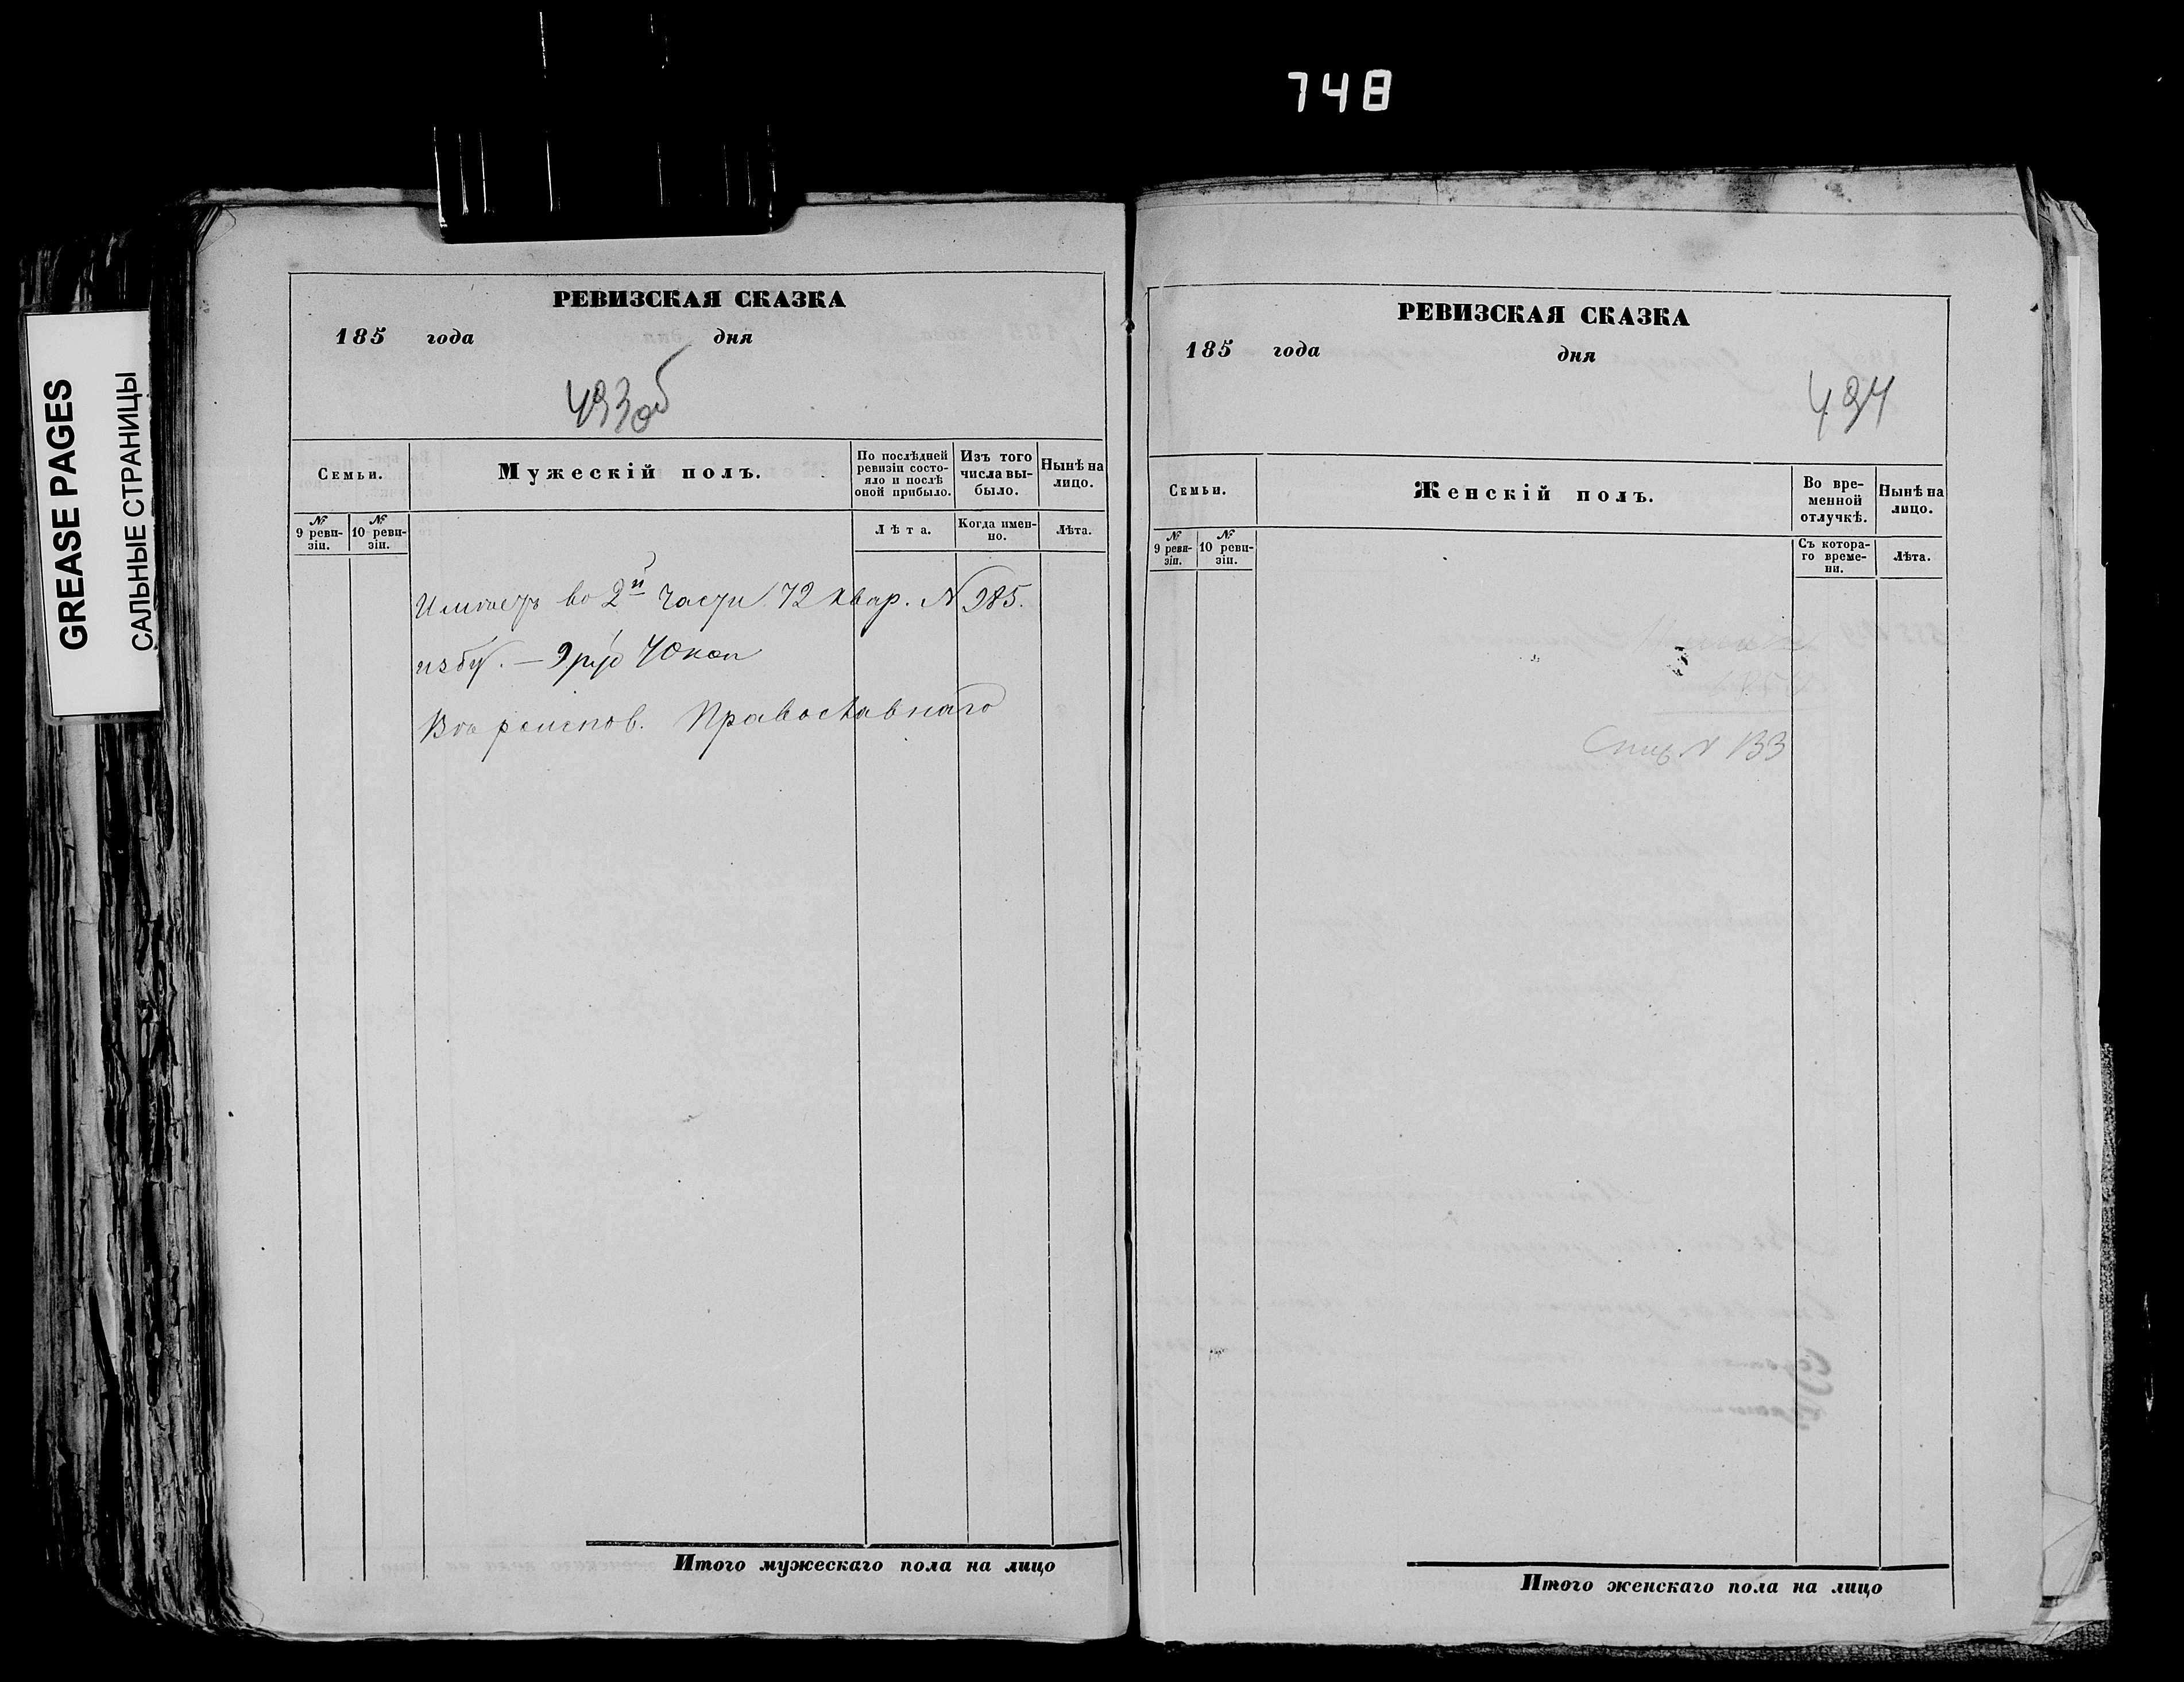 748
GREASE PAGES
САЛЬНЫЕ СТРАНИЦЫ
РЕВИЗСКАЯ СКАЗКА
185 года дня
493об
Семьи.
Мужескій полъ.
По послѣдней ревизіи состояло и послѣ оной прибыло.
Изъ того числа выбыло.
Нынѣ на лицо.
№ 9 ревизіи.
№ 10 ревизіи.
Лѣта.
Когда именно.
Лѣта.
во 2й части 72 квар. № 985.
избу. — 9 руб 40 коп
Православнаго
Итого мужескаго пола на лицо
РЕВИЗСКАЯ СКАЗКА
185 года дня
494
Семьи.
Женскій полъ.
Во временной отлучкѣ.
Нынѣ на лицо.
№ 9 ревизіи.
№ 10 ревизіи.
Съ котораго времени.
Лѣта.
№ 133
Итого женскаго пола на лицо